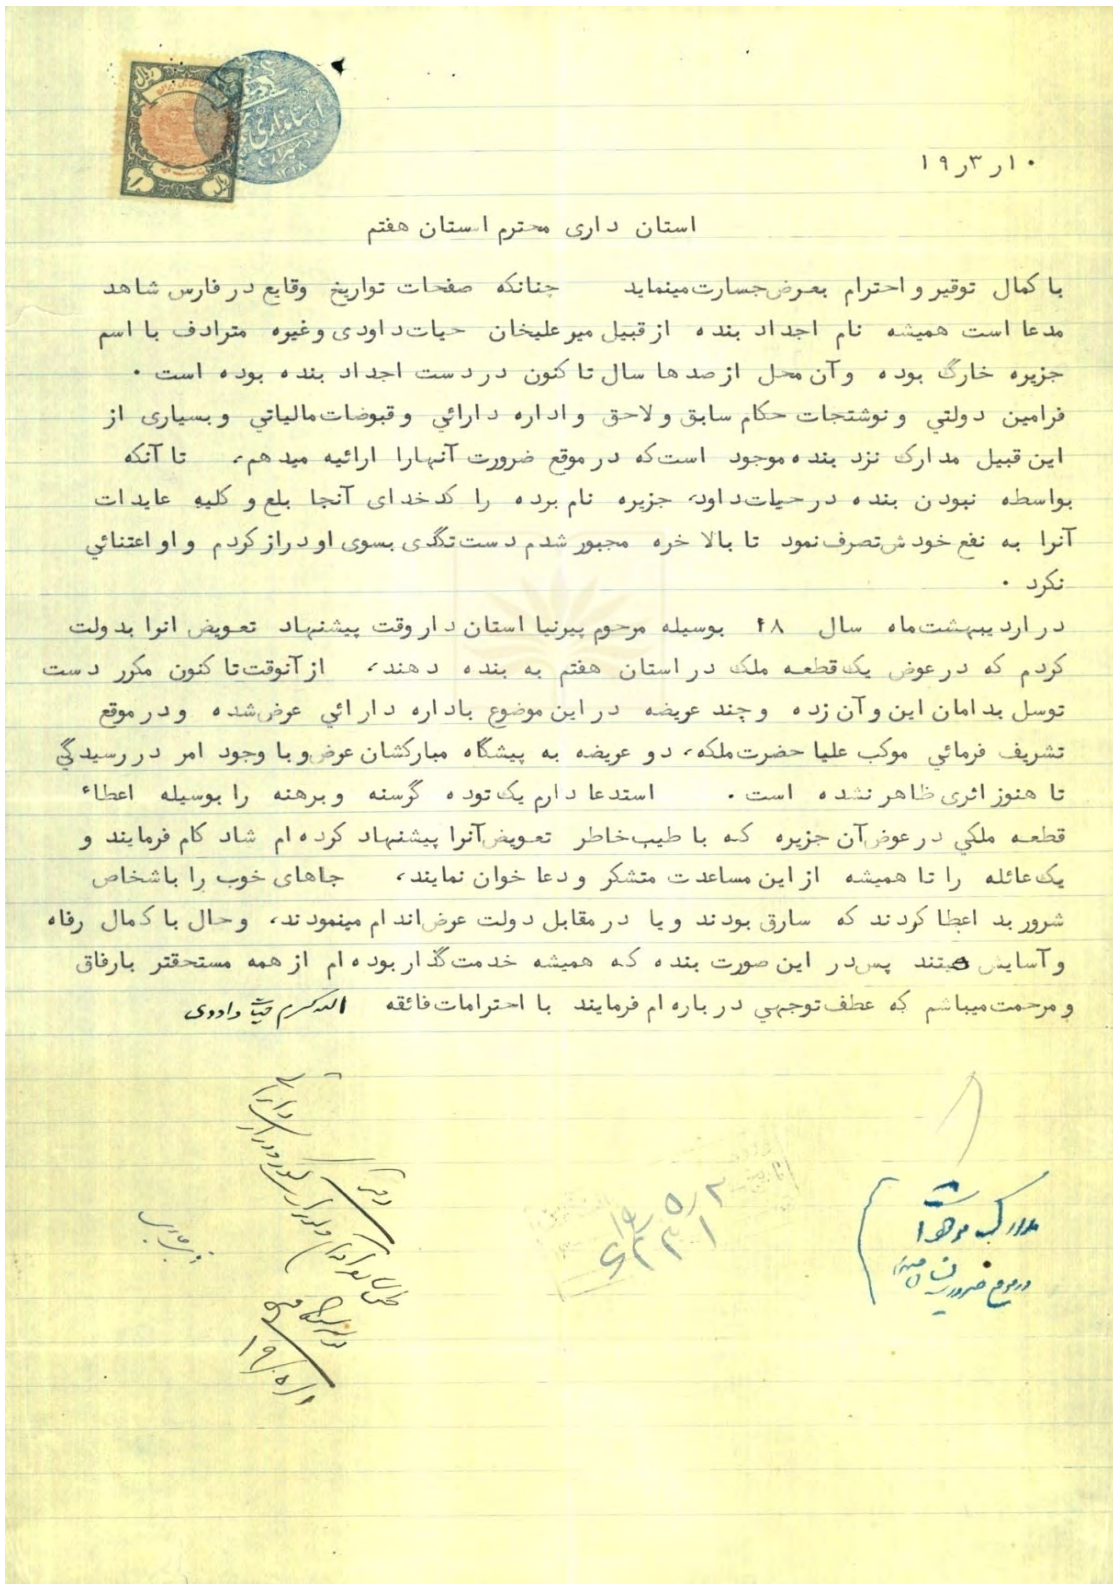 ۱۰ر۳ر۱۹
استان داری محترم استان هفتم
با کمال توقیر و احترام بعرض جسارت مینماید چنانکه صفحات تواریخ وقایع در فارس شاهد
مدعا است همیشه نام اجداد بنده از قبیل میر علیخان حیات داودی و غیره مترادف با اسم
جزیره خارگ بوده و آن محل از صد ها سال تا کنون در دست اجداد بنده بوده است ۰
فرامین دولتي و نوشتجات حکام سابق و لاحق و اداره دارائي و قبوضات مالیاتي و بسیاری از
این قبیل مدارک نزد بنده موجود است که در موقع ضرورت آنهارا ارائیه میدهم، تا آنکه
بواسطه نبودن بنده در حیات داود، جزیره نام برده را کدخدای آنجا بلع و کلیه عایدات
آنرا به نفع خودش تصرف نمود تا بالا خره مجبور شدم دست تگدی بسوی او دراز کردم و او اعتنائي
نکرد ۰
در اردیبهشت ماه سال ۱۸ بوسیله مرحوم پیرنیا استان دار وقت پیشنهاد تعویض انرا بدولت
کردم که در عوض یک قطعه ملک در استان هفتم به بنده دهند، از آنوقت تا کنون مکرر دست
توسل بدامان این و آن زده و چند عریضه در این موضوع باداره دارائي عرض شده و در موقع
تشریف فرمائي موکب علیا حضرت ملکه، دو عریضه به پیشگاه مبارکشان عرض و با وجود امر در رسیدگي
تا هنوز اثری ظاهر نشده است ۰ استدعا دارم یک توده گرسنه و برهنه را بوسیله اعطاء
قطعه ملکي در عوض آن جزیره که با طیب خاطر تعویض آنرا پیشنهاد کرده ام شاد کام فرمایند و
یک عائله را تا همیشه از این مساعدت متشکر و دعا خوان نمایند، جاهای خوب را باشخاص
شرور بد اعطا کردند که سارق بودند و یا در مقابل دولت عرض اندام مینمودند، و حال با کمال رفاه
و آسایش هستند پس در این صورت بنده که همیشه خدمت گذار بوده ام از همه مستحقتر بارفاق
و مرحمت میباشم که عطف توجهي در باره ام فرمایند با احترامات فائقه الله کرم حیات داودی
دفتر
۱۹/۵/۱
در موقع ضرورت